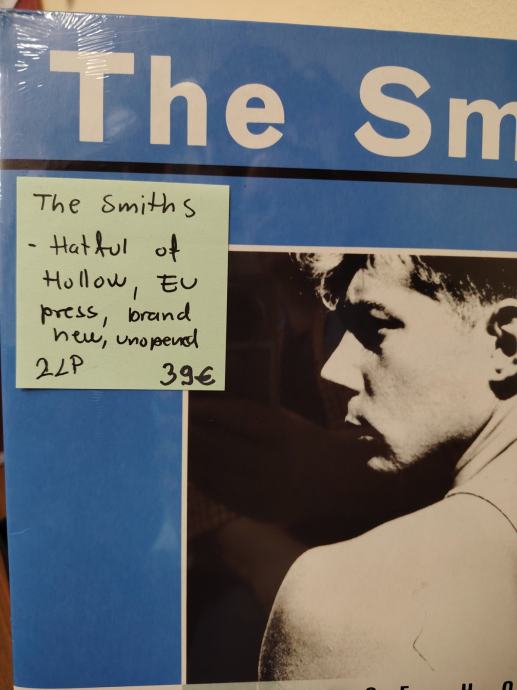 The Sm
The Smiths
- Hatful of
Hollow, EU
press, brand
new, unopend
2LP 39€